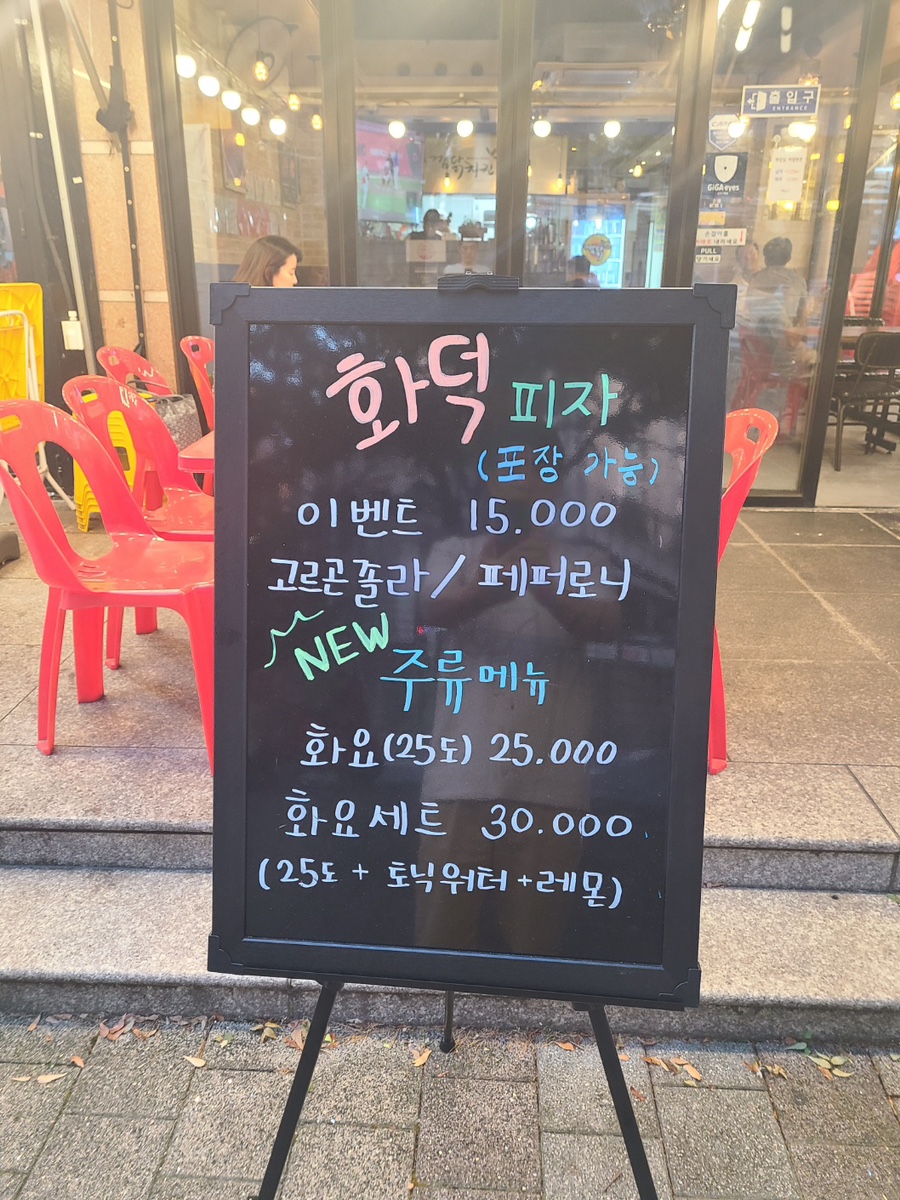 출입구
ENTRANCE
GiGAeyes
PULL
화덕 피자
(포장 가능)
이벤트 15.000
고르곤졸라/페퍼로니
NEW
주류메뉴
화요(25도) 25.000
화요세트 30.000
(25도 + 토닉워터+레몬)